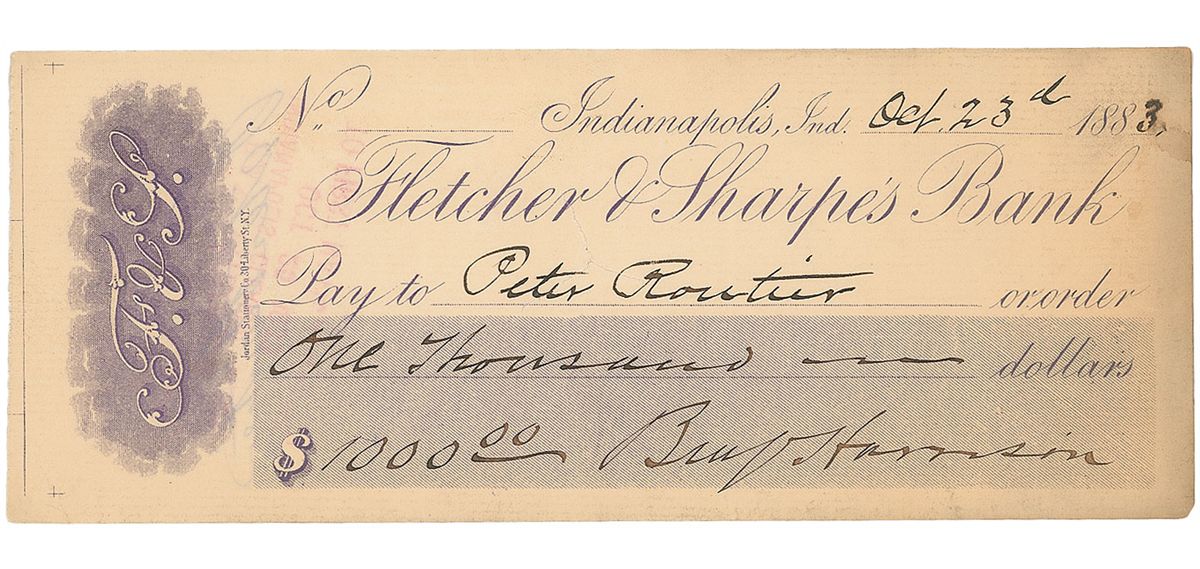 No. Indianapolis, Ind. Oct. 23d 1883
Fletcher & Sharpe's Bank
Pay to Peter Routier or order
One Thousand dollars
$ 1000 00 Benj Harrison
F. & S.
Jordan Stationery Co. 30 Liberty St. N.Y.